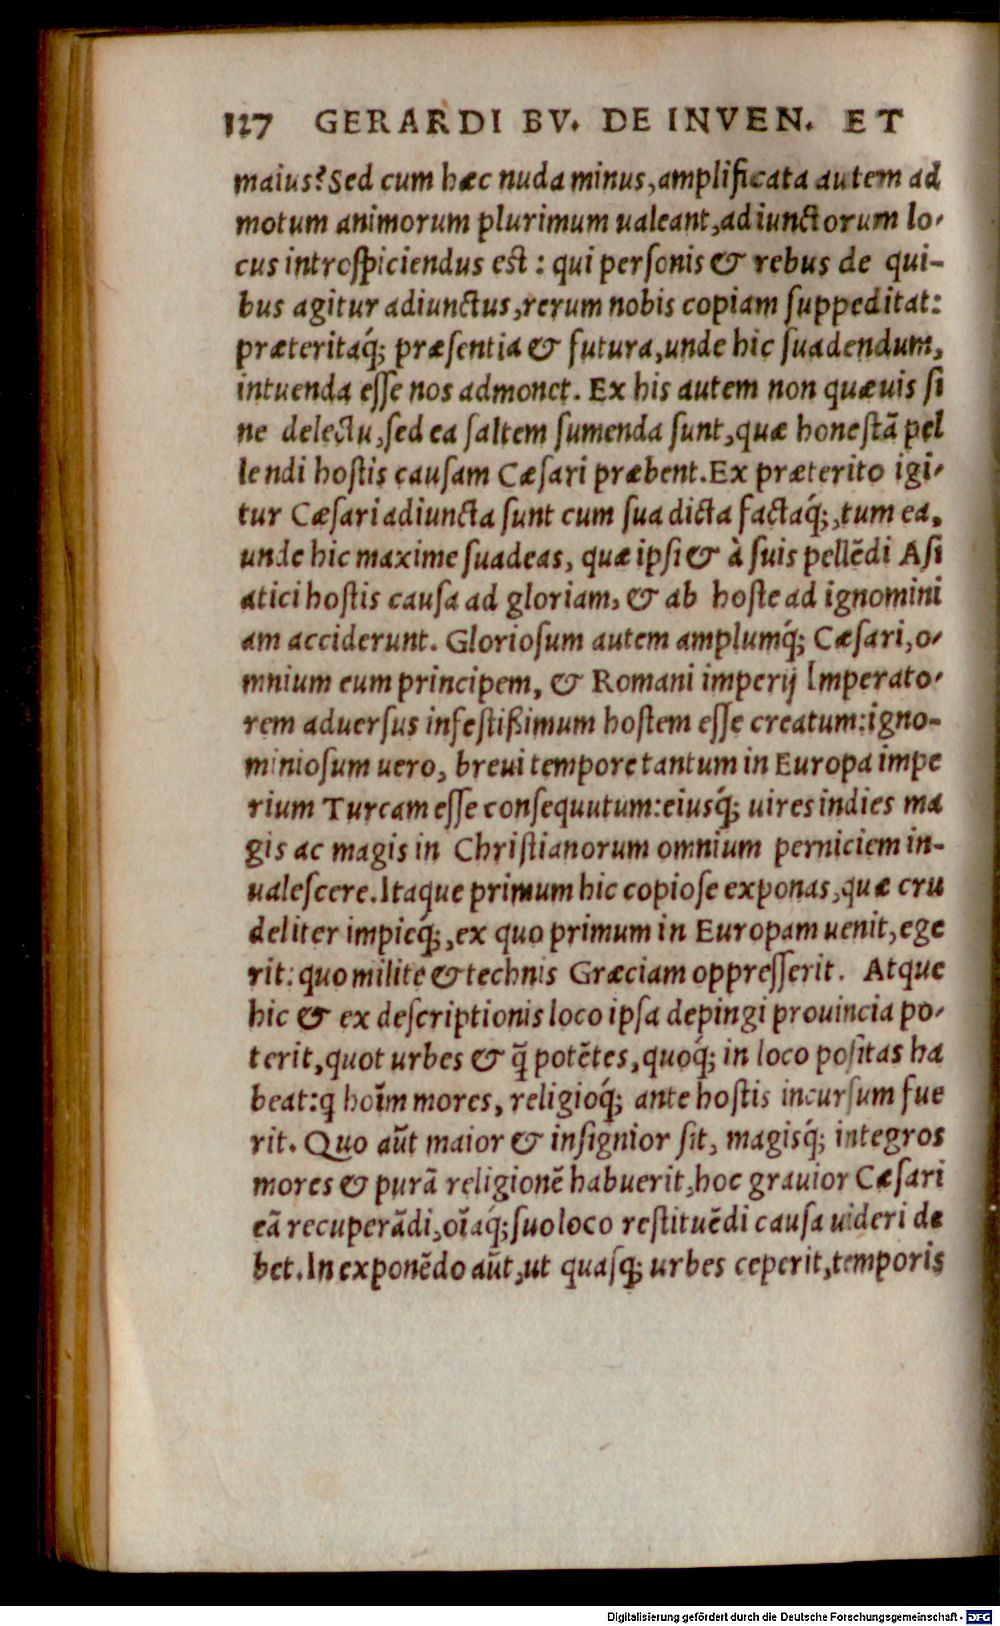 127 GERARDI BV. DE INVEN. ET
maius? Sed cum hæc nuda minus, amplificata autem ad
motum animorum plurimum ualeant, adiunctorum lo-
cus introspiciendus est : qui personis & rebus de qui-
bus agitur adiunctus, rerum nobis copiam suppeditat:
præteritaq́; præsentia & futura, unde hic suadendum,
intuenda esse nos admonet. Ex his autem non quæuis si
ne delectu, sed ea saltem sumenda sunt, quæ honestã pel
lendi hostis causam Cæsari præbent. Ex præterito igi-
tur Cæsari adiuncta sunt cum sua dicta factaq́;, tum ea,
unde hic maxime suadeas, quæ ipsi & à suis pellẽdi Asi
atici hostis causa ad gloriam, & ab hoste ad ignomini
am acciderunt. Gloriosum autem amplumq́; Cæsari, o-
mnium eum principem, & Romani imperij Imperato-
rem aduersus infestißimum hostem esse creatum: igno-
miniosum uero, breui tempore tantum in Europa impe
rium Turcam esse consequutum: eiusq́; uires indies ma
gis ac magis in Christianorum omnium perniciem in-
ualescere. Itaque primum hic copiose exponas, quæ cru
deliter impieq́;, ex quo primum in Europam uenit, ege
rit: quo milite & technis Græciam oppresserit. Atque
hic & ex descriptionis loco ipsa depingi prouincia po-
terit, quot urbes & q̃ potẽtes, quoq́; in loco positas ha
beat: q hoĩm mores, religioq́; ante hostis incursum fue
rit. Quo aũt maior & insignior sit, magisq́; integros
mores & purã religionẽ habuerit, hoc grauior Cæsari
eã recuperãdi, oĩaq́; suo loco restituẽdi causa uideri de
bet. In exponẽdo aũt, ut quasq; urbes ceperit, temporis
Digitalisierung gefördert durch die Deutsche Forschungsgemeinschaft - DFG